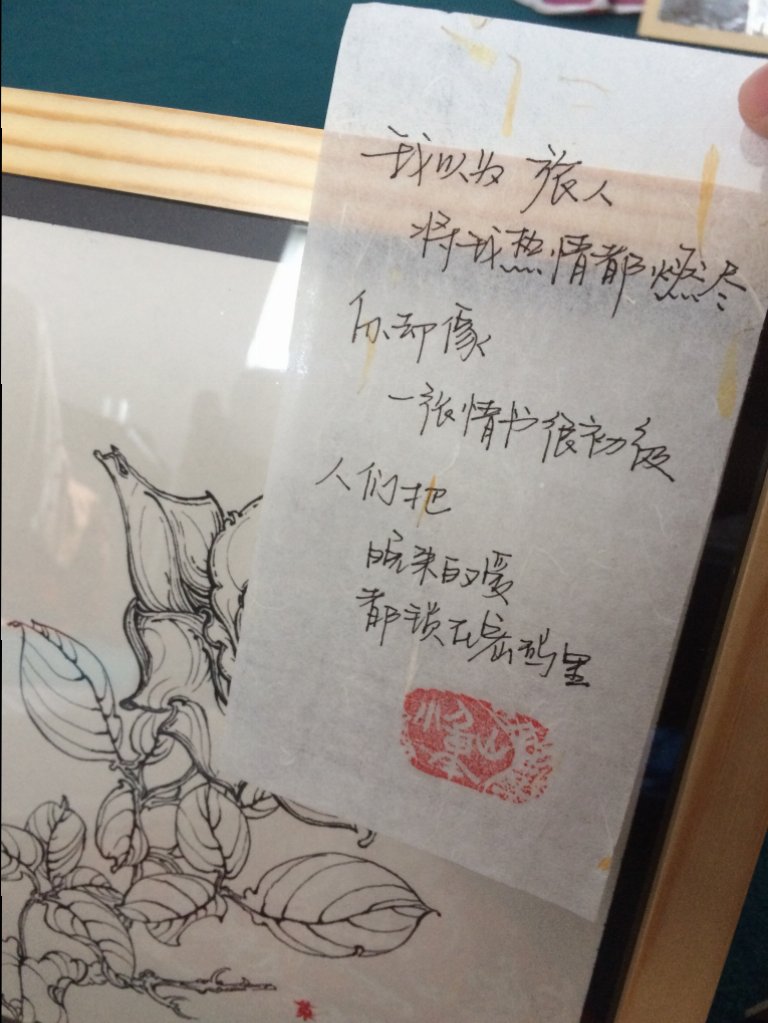 我以为 旅人
将我热情都燃尽
你却像
一张情书很初级
人们把
晚来的爱
都锁在密码里